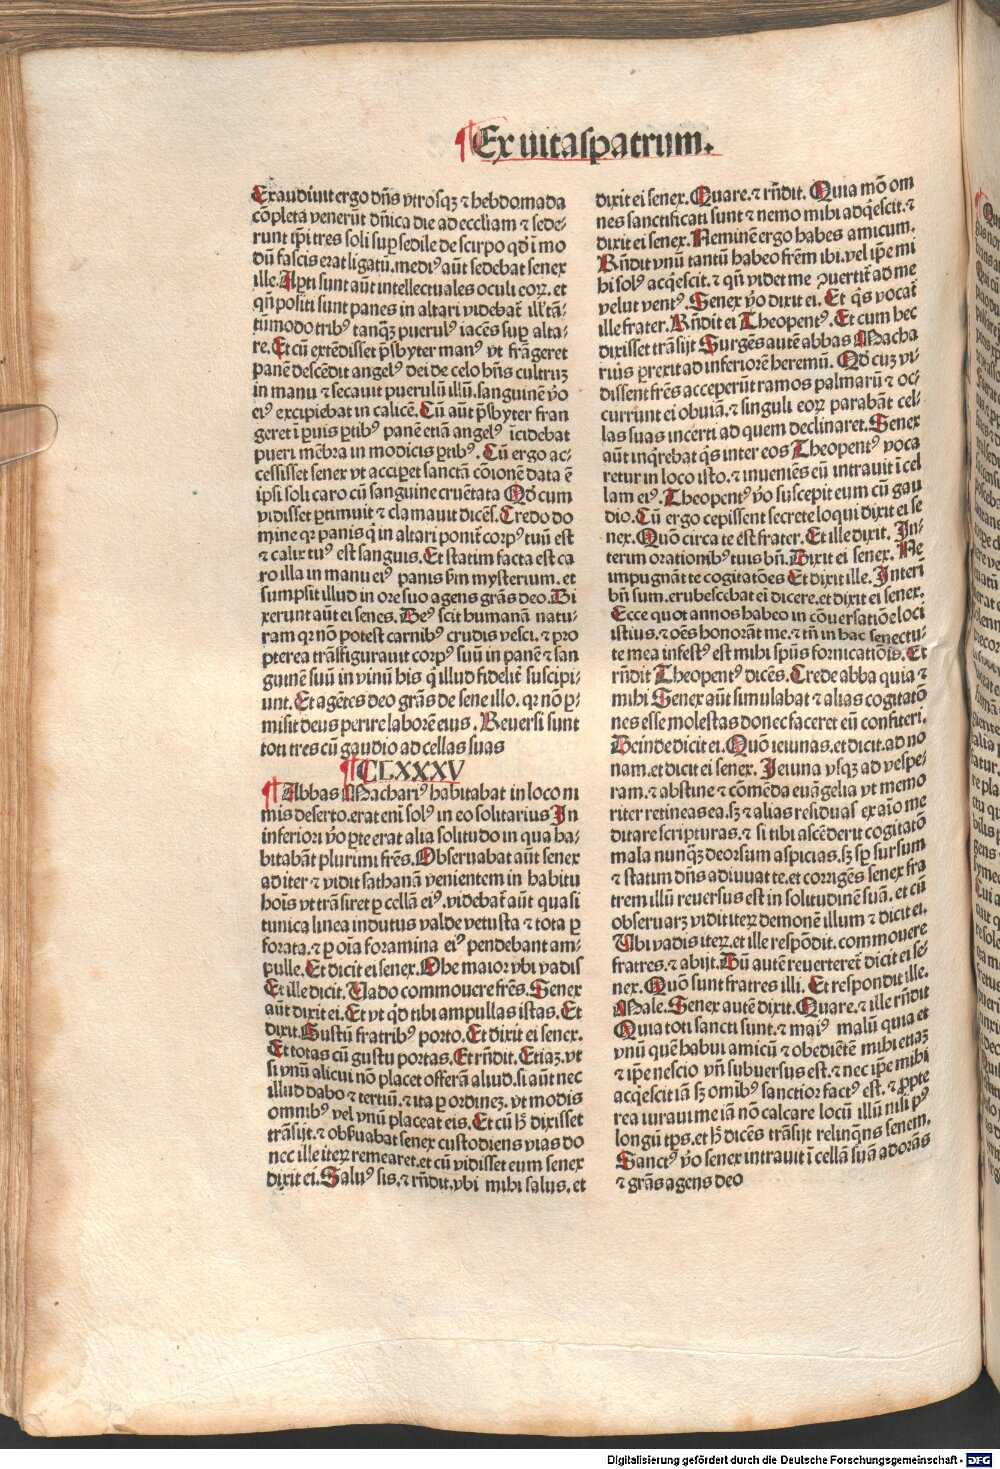 ¶Ex uitaspatrum.
Exaudiuit ergo dñs vtrosqꝫ ⁊ hebdomada
cōpleta venerūt dñica die ad eccliam ⁊ sede⸗
runt ip̄i tres soli sup̱ sedile de scirpo qd̓ ī mo
dū fascis erat ligatū. mediꝰ aūt sedebat senex
ille. Ap̱ti sunt aūt intellectuales oculi eoꝝ. et
qn̄ positi sunt panes in altari videbat̄ illˀ tā⸗
tūmodo tribꝰ tanqꝫ puerulꝰ iacēs sup̱ alta⸗
re. Et cū extēdisset p̄sbyter manꝰ vt frāgeret
panē descēdit angelꝰ dei de celo hn̄s cultruꝫ
in manu ⁊ secauit puerulū illū. sanguinē v̓o
eiꝰ excipiebat in calicē. Cū aūt p̄sbyter fran
geret ī ꝑuis ꝑtibꝰ panē etiā angelꝰ īcidebat
pueri mēbra in modicis ꝑtibꝰ. Cū ergo ac⸗
cessisset senex vt accip̱et sanctā cōionē data ē
ip̄si soli caro cū sanguine cruētata Qd̓ cum
vidisset ꝑtimuit ⁊ clamauit dicēs. Credo do
mine qꝛ panis q̇ in altari ponit̄ corpꝰ tuū est
⁊ calix tuꝰ est sanguis. Et statim facta est ca
ro illa in manu eiꝰ panis ẜm mysterium. et
sumpsit illud in ore suo agens grās deo. Di
xerunt aūt ei senes. Deꝰ scit humanā natu⸗
ram qꝛ nō potest carnibꝰ crudis vesci. ⁊ pro
pterea trāsfigurauit corpꝰ suū in panē ⁊ san
guinē suū in vinū his q̇ illud fidelit̄ suscipi⸗
unt. Et agētes deo grās de sene illo. qꝛ nō ꝑ⸗
misit deus perire laborē eius. Reuersi sunt
toti tres cū gaudio ad cellas suas
¶CLXXXV
¶Abbas Machariꝰ habitabat in loco ni
mis deserto. erat eni solꝰ in eo solitarius In
inferiori v̓o ꝑte erat alia solitudo in qua ha⸗
bitabāt plurimi frēs. Obseruabat aūt senex
ad iter ⁊ vidit sathanā venientem in habitu
hoīs vt trāsiret ꝑ cellā eiꝰ. videbat̄ aūt quasi
tunica linea indutus valde vetusta ⁊ tota ꝑ
forata. ⁊ ꝑ oīa foramina eiꝰ pendebant am⸗
pulle. Et dicit ei senex. Ohe maior vbi vadis
Et ille dicit. Vado commouere frēs. Senex
aūt dixit ei. Et vt qd̓ tibi ampullas istas. Et
dixit. Gustū fratribꝰ porto. Et dixit ei senex.
Et totas cū gustu portas. Et rn̄dit. Etiaꝫ. vt
si vnū alicui nō placet offerā aliud. si aūt nec
illud dabo ⁊ tertiū. ⁊ ita ꝑ ordineꝫ. vt modis
omnibꝰ vel vnū placeat eis. Et cū h̓ dixisset
trāsijt. ⁊ obẜuabat senex custodiens vias do
nec ille iteꝝ remearet. et cū vidisset eum senex
dixit ei. Saluꝰ sis. ⁊ rn̄dit. vbi mihi salus. et
dixit ei senex. Quare. ⁊ rn̄dit. Quia mō om
nes sanctificati sunt ⁊ nemo mihi adq̇escit. ⁊
dixit ei senex. Neminē ergo habes amicum.
Rn̄dit vnū tantū habeo frēm ibi. vel ip̄e mi
hi solꝰ acq̇escit. ⁊ qn̄ videt me ꝯuertit̄ ad me
velut ventꝰ. Senex v̓o dixit ei. Et q̇s vocat̄
ille frater. Rn̄dit ei Theopentꝰ. Et cum hec
dixisset trāsijt Surgēs autē abbas Macha
rius ꝑrexit ad inferiorē heremū. Qd̓ cuꝫ vi⸗
dissent frēs acceperūt ramos palmarū ⁊ oc⸗
currunt ei obuiā. ⁊ singuli eoꝝ parabāt cel⸗
las suas incerti ad quem declinaret. Senex
aūt inq̇rebat q̇s inter eos Theopentꝰ voca
retur in loco isto. ⁊ inueniēs eū intrauit ī cel
lam eiꝰ. Theopentꝰ v̓o suscepit eum cū gau
dio. Cū ergo cepissent secrete loqui dixit ei se
nex. Quō circa te est frater. Et ille dixit. In⸗
terim orationibꝰ tuis bn̄. Dixit ei senex. Ne
impugnāt te cogitatōes Et dixit ille. Interī
bn̄ sum. erubescebat ei dicere. et dixit ei senex.
Ecce quot annos habeo in cōuersatiōe loci
istius. ⁊ oēs honorāt me. ⁊ tn̄ in hac senectu⸗
te mea infestꝰ est mihi spūs fornicatiōis. Et
rn̄dit Theopentꝰ dicēs. Crede abba quia ⁊
mihi Senex aūt simulabat ⁊ alias cogitatō
nes esse molestas donec faceret eū confiteri.
Deinde dicit ei. Quō ieiunas. et dicit. ad no
nam. et dicit ei senex. Ieiuna vsqꝫ ad vespe⸗
ram. ⁊ abstine ⁊ cōmēda euāgelia vt memo
riter retineas ea. sꝫ ⁊ alias residuas ex aīo me
ditare scripturas. ⁊ si tibi ascēderit cogitatō
mala nunqꝫ deorsum aspicias. sꝫ sp̱ sursum
⁊ statim dn̄s adiuuat te. et corrigēs senex fra
trem illū reuersus est in solitudinē suā. et cū
obseruarꝫ vidit iteꝝ demonē illum ⁊ dicit ei.
Vbi vadis iteꝝ. et ille respōdit. commouere
fratres. ⁊ abijt. Dū autē reuerteret̄ dicit ei se⸗
nex. Quō sunt fratres illi. Et respondit ille.
Male. Senex autē dixit. Quare. ⁊ ille rn̄dit
Quia toti sancti sunt. ⁊ maiꝰ malū quia et
vnū quē habui amicū ⁊ obediētē mihi etiaꝫ
⁊ ip̄e nescio vn̄ subuersus est. ⁊ nec ip̄e mihi
acq̇escit iā sꝫ omībꝰ sanctior factꝰ est. ⁊ ꝓpte
rea iuraui me iā nō calcare locū illū nisi pꝰ
longū tp̄s. et h̓ dicēs trāsijt relinq̇ns senem.
Sanctꝰ v̓o senex intrauit ī cellā suā adorās
⁊ grās agens deo
Digitalisierung gefördert durch die Deutsche Forschungsgemeinschaft - DFG